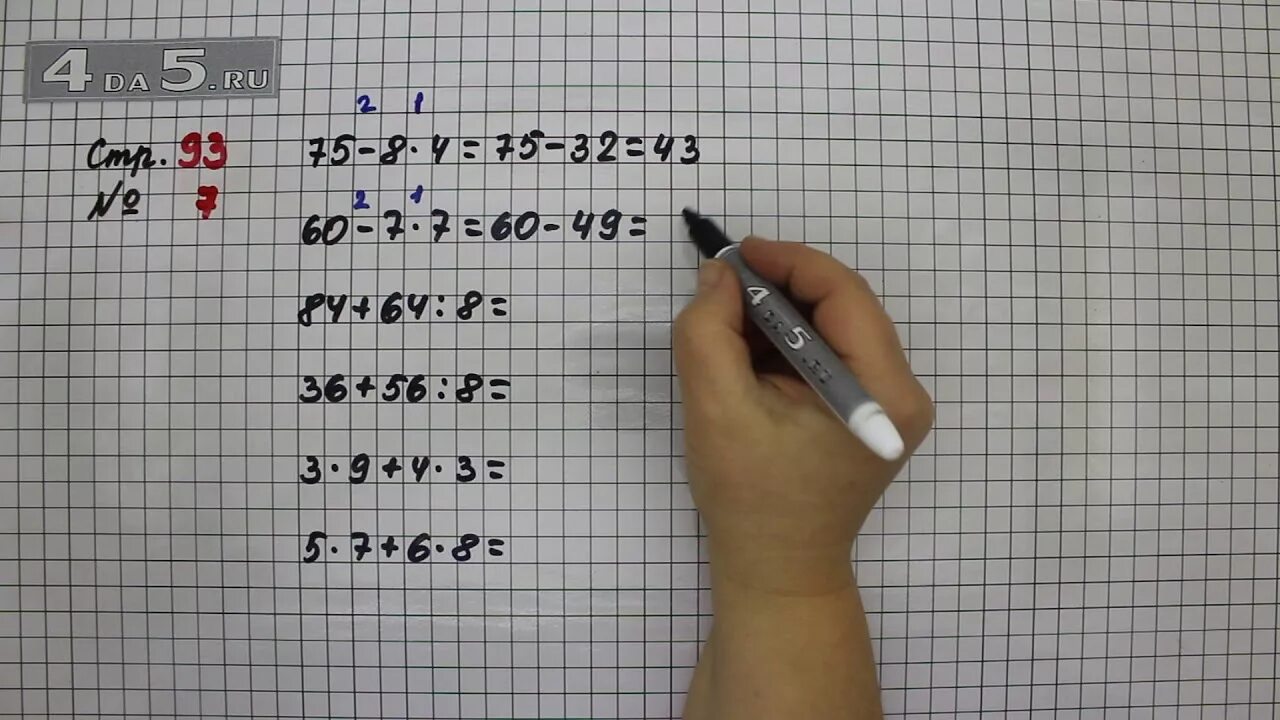 4 DA 5.RU
Стр. 93
№ 7
2 1
75-8·4=75-32=43
2 1
60-7·7=60-49=
84+64:8=
36+56:8=
3·9+4·3=
5·7+6·8=
4 DA 5.RU